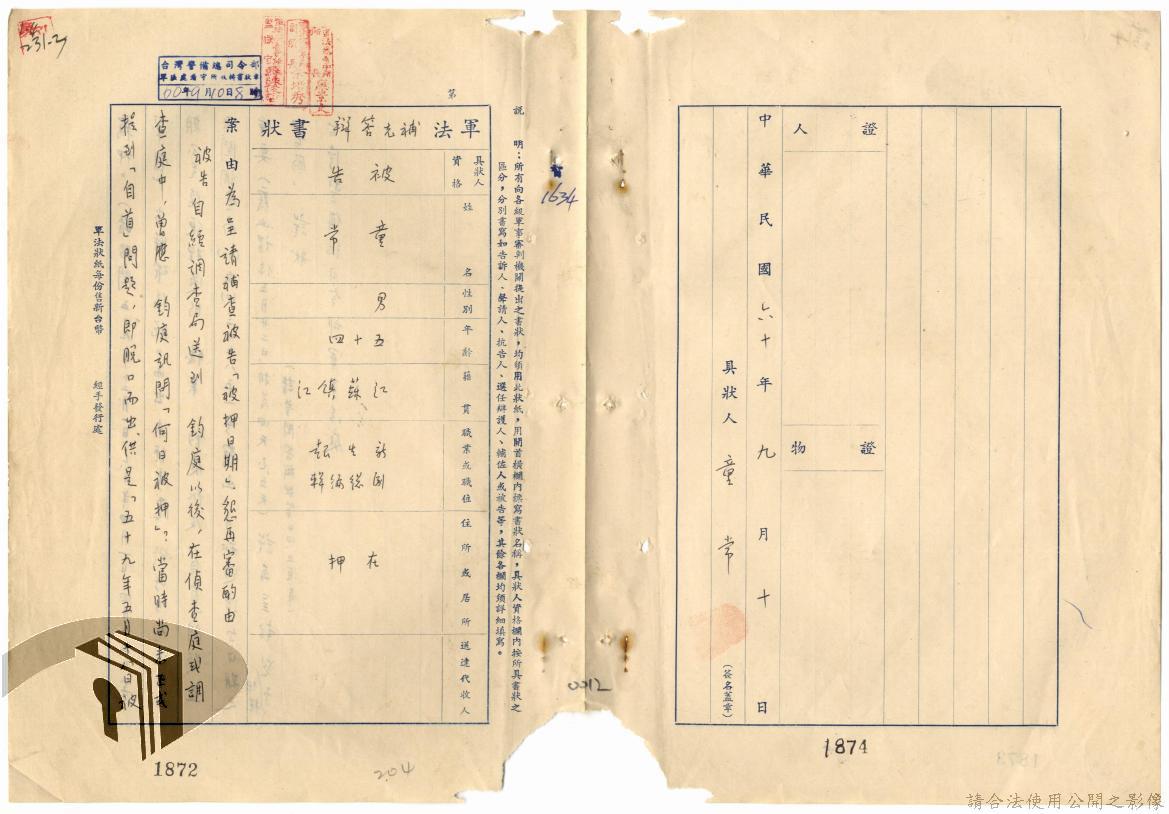 231-2
台灣警備總司令部
60年9月10日8時
說明：所有向各級軍事審判機關提出之書狀，均須用此狀紙，用開首橫欄內標寫書狀名稱，具狀人資格欄內按所具書狀之
區分，分別書寫如告訴人、聲請人、抗告人、選任辯護人、輔佐人或被告等，其餘各欄均須詳細填寫。
第
軍法補充答辯書狀
具狀人資格 被告
姓名 童常
性別 男
年齡 四十五
籍貫 江蘇鎮江
職業或職位 新生報副總編輯
住所或居所 在押
送達代收人
案由為呈請補查被告「被押日期」懇再審酌由
被告自經調查局送到 鈞庭以後，在偵查庭或調
查庭中，曾應 鈞庭訊問「何日被押」？當時尚未
提到「自首」問題，即脫口而出供是「五十九年五月十
軍法狀紙每份售新台幣
經手發行處
1872
204
1634
0012
證人
證物
中華民國六十年九月十日
具狀人 童常
(簽名蓋章)
1874
1873
請合法使用公開之影像